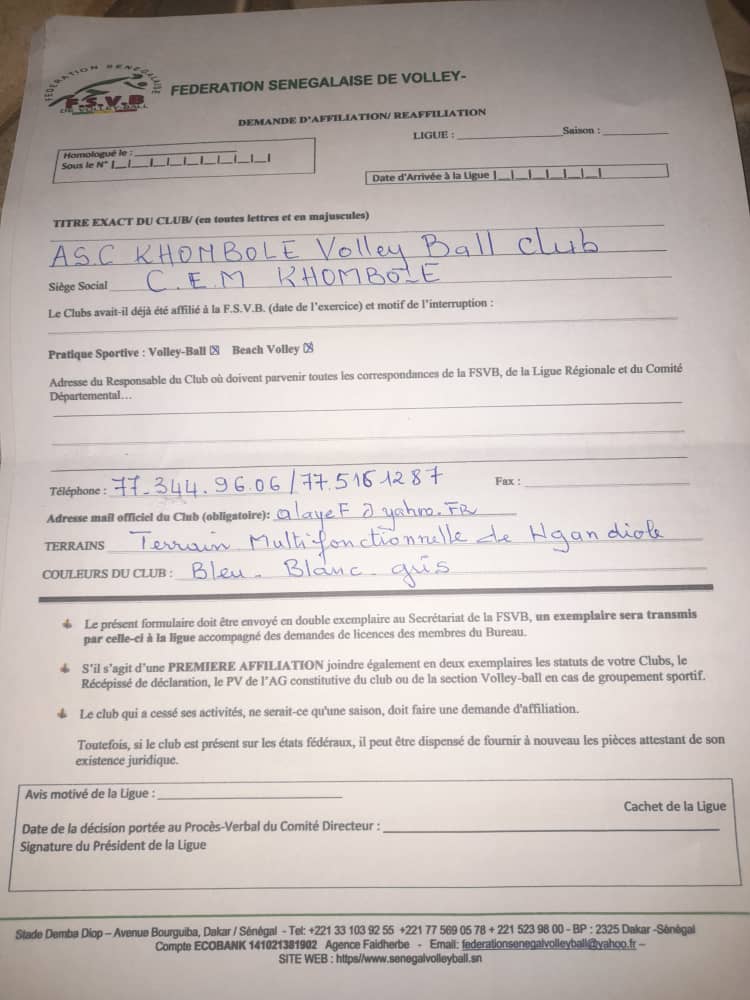 FEDERATION SENEGALAISE
F.S.V.B
DE VOLLEY-BALL
FEDERATION SENEGALAISE DE VOLLEY-
DEMANDE D'AFFILIATION/ REAFFILIATION
LIGUE : Saison :
Homologué le :
Sous le N°
Date d'Arrivée à la Ligue
TITRE EXACT DU CLUB/ (en toutes lettres et en majuscules)
A.S.C KHOMBOLE Volley Ball club
Siège Social C.E.M KHOMBOLE
Le Clubs avait-il déjà été affilié à la F.S.V.B. (date de l'exercice) et motif de l'interruption :
Pratique Sportive : Volley-Ball ☒ Beach Volley ☒
Adresse du Responsable du Club où doivent parvenir toutes les correspondances de la FSVB, de la Ligue Régionale et du Comité
Départemental…
Téléphone : 77.344.96.06/77.516 1287 Fax :
Adresse mail officiel du Club (obligatoire): alayeF @ yahoo.FR
TERRAINS Terrain Multifonctionnelle de Ngandiole
COULEURS DU CLUB : Bleu - Blanc - gris
Le présent formulaire doit être envoyé en double exemplaire au Secrétariat de la FSVB, un exemplaire sera transmis
par celle-ci à la ligue accompagné des demandes de licences des membres du Bureau.
S'il s'agit d'une PREMIERE AFFILIATION joindre également en deux exemplaires les statuts de votre Clubs, le
Récépissé de déclaration, le PV de l'AG constitutive du club ou de la section Volley-ball en cas de groupement sportif.
Le club qui a cessé ses activités, ne serait-ce qu'une saison, doit faire une demande d'affiliation.
Toutefois, si le club est présent sur les états fédéraux, il peut être dispensé de fournir à nouveau les pièces attestant de son
existence juridique.
Avis motivé de la Ligue :
Cachet de la Ligue
Date de la décision portée au Procès-Verbal du Comité Directeur :
Signature du Président de la Ligue
Stade Demba Diop – Avenue Bourguiba, Dakar / Sénégal - Tel: +221 33 103 92 55 +221 77 569 05 78 + 221 523 98 00 - BP : 2325 Dakar -Sénégal
Compte ECOBANK 141021381902 Agence Faidherbe - Email: federationsenegalvolleyball@yahoo.fr –
SITE WEB : https//www.senegalvolleyball.sn